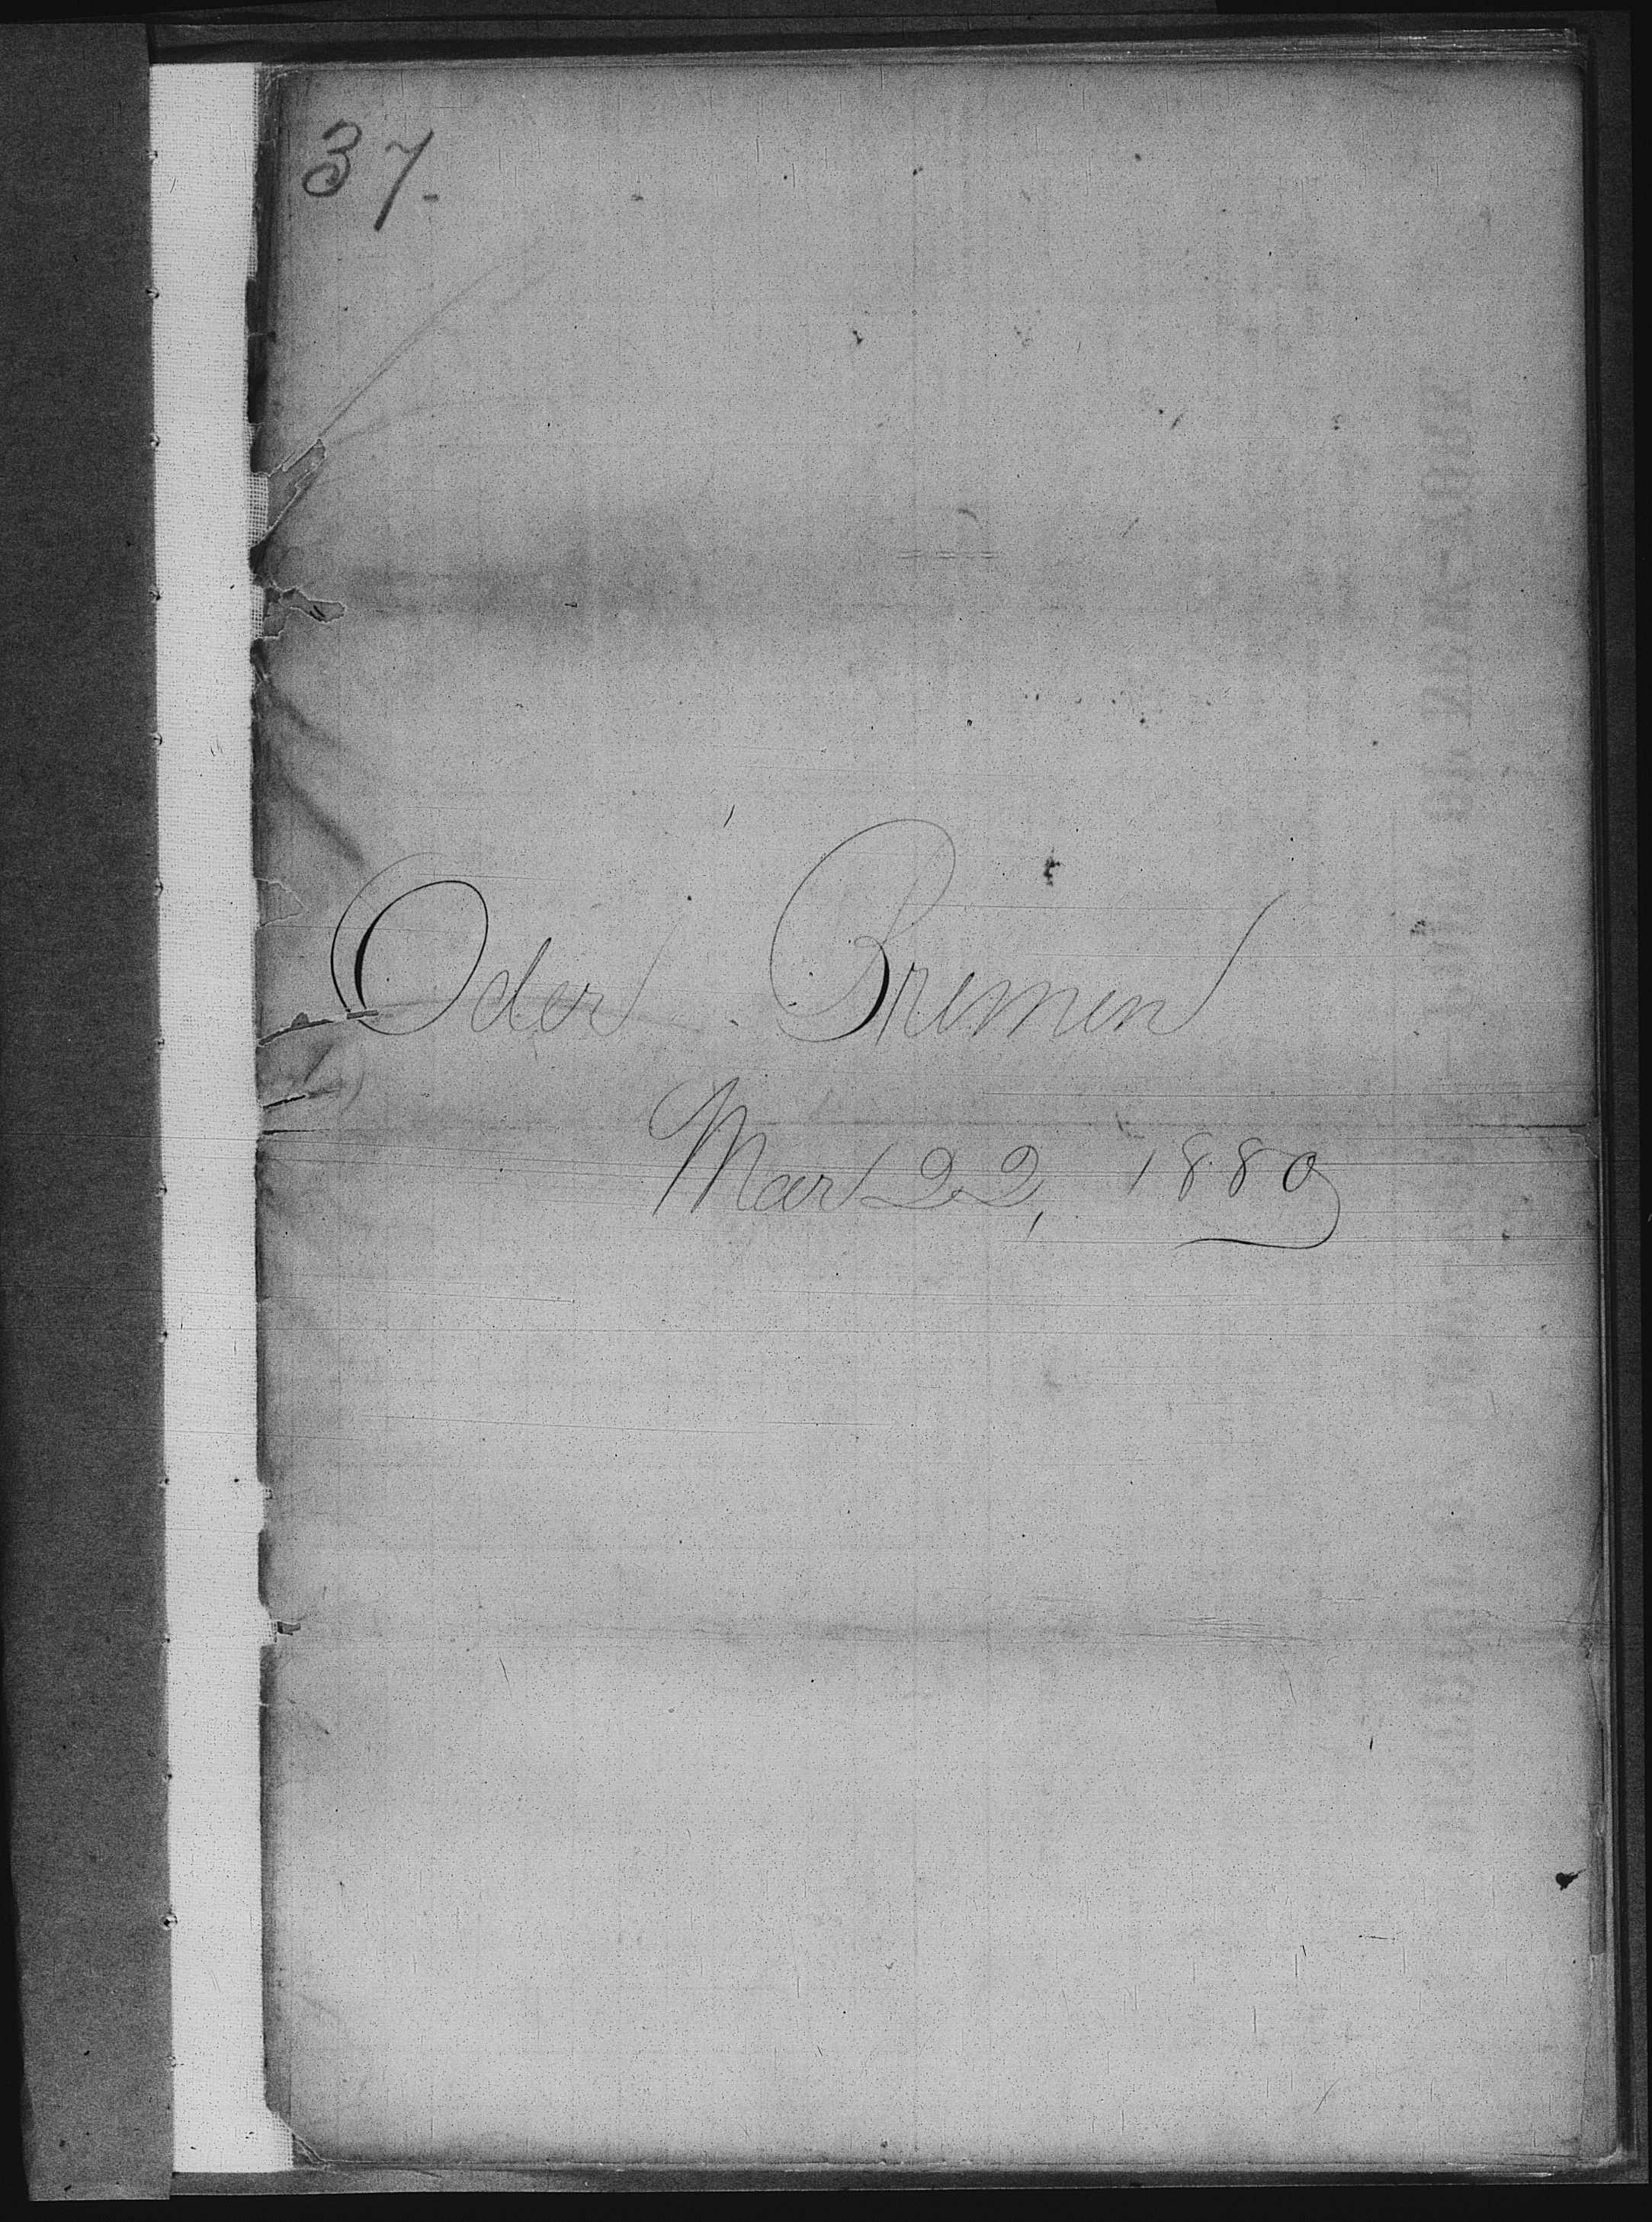 37.
Oder Bremen
Mar 22, 1880